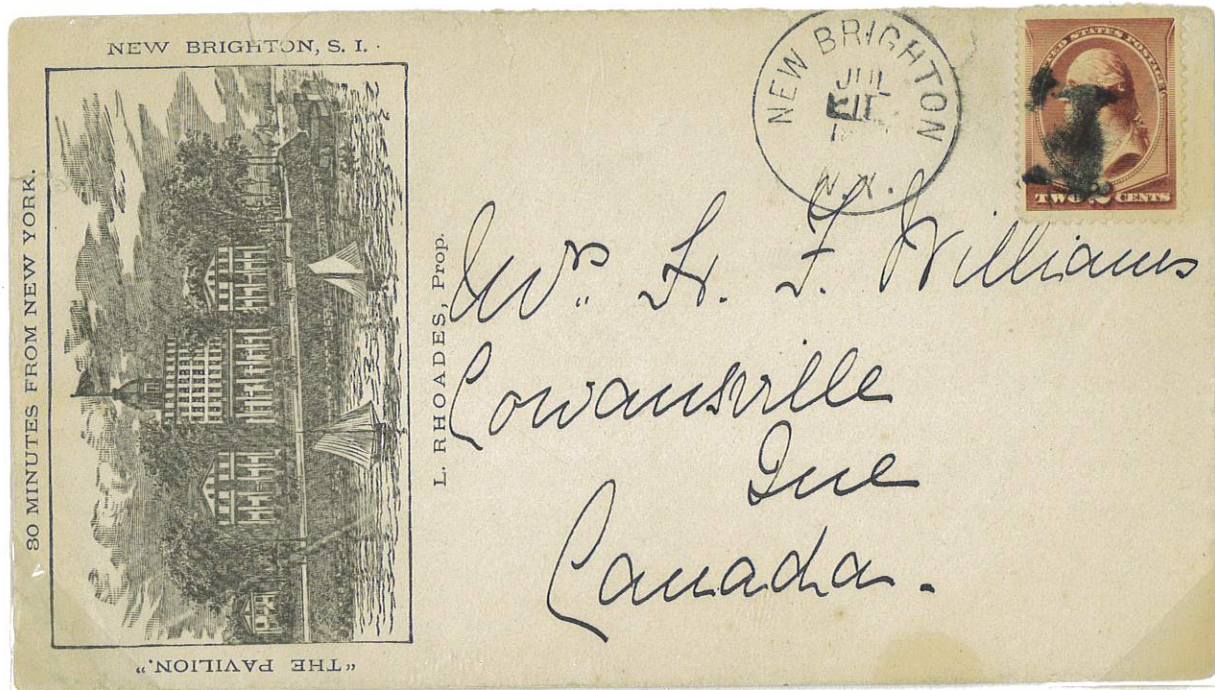 NEW BRIGHTON, S. I.
30 MINUTES FROM NEW YORK.
"THE PAVILION."
L. RHOADES, Prop.
NEW BRIGHTON
JUL
N.Y.
UNITED STATES POSTAGE
TWO 2 CENTS
Mrs. H. F. Williams
Cowansville
Que
Canada.